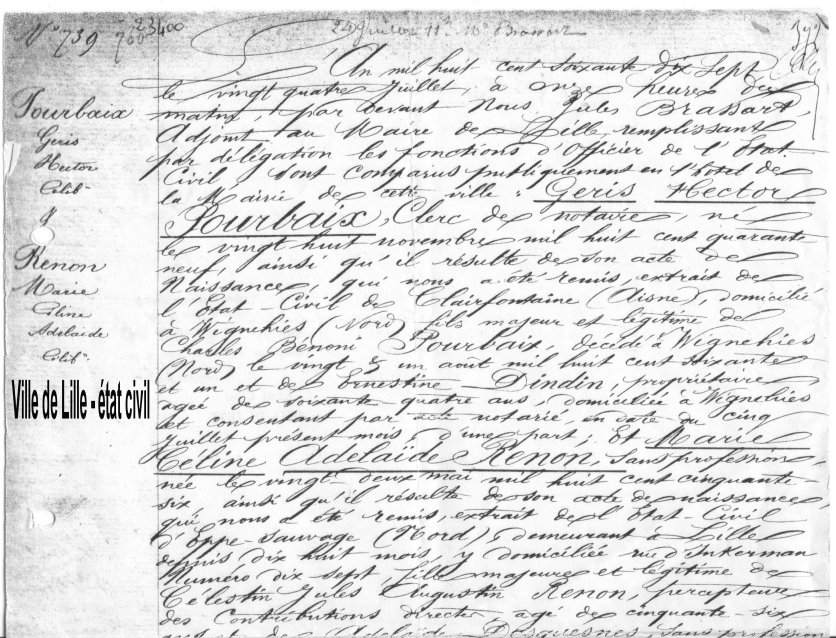 N° 739
23400
24 Juillet 11h Mr Brassart
L'An mil huit cent soixante dix sept
le vingt quatre Juillet, à onze heures du
matin, par devant Nous Jules Brassart,
Adjoint au Maire de Lille, remplissant
par délégation les fonctions d'Officier de l'Etat
Civil sont comparus publiquement en l'hôtel de
la Mairie de cette ville : Geris Hector
Pourbaix, Clerc de notaire, né
le vingt huit novembre mil huit cent quarante
neuf, ainsi qu'il résulte de son acte de
Naissance, qui nous a été remis, extrait de
l'Etat-Civil de Clairfontaine (Aisne), domicilié
à Wignehies (Nord) fils majeur et légitime de
Charles Bénoni Pourbaix, décédé à Wignehies
(Nord) le vingt & un août mil huit cent soixante
et un et de Ernestine Dindin, propriétaire
agée de soixante quatre ans, domiciliée à Wignehies
et consentant par acte notarié, en date du cinq
Juillet présent mois, d'une part ; Et Marie
Céline Adelaïde Renon, sans profession,
née le vingt deux mai mil huit cent cinquante
six ainsi qu'il résulte de son acte de naissance,
qui nous a été remis, extrait de l'Etat Civil
d'Eppe-Sauvage (Nord), demeurant à Lille
depuis dix huit mois, y domiciliée rue d'Inkerman
Numéro dix sept, fille majeure et légitime de
Célestin Jules Augustin Renon, percepteur
des Contributions directes agé de cinquante-six
ans et de Adelaïde Desquesnes sans profession
Pourbaix
Geris
Hector
Célib.
&
Renon
Marie
Céline
Adelaïde
Célib.
Ville de Lille - état civil